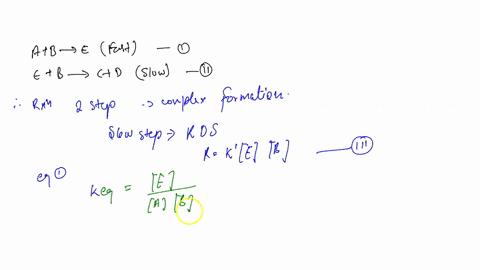 A+B → E (Fast) — I
E+B → C+D (Slow) — II
∴ Rxn 2 step → complex formation.
Slow step → RDS
R = K' [E] [B] — III
eq I
Keq = [E] / [A] [B]